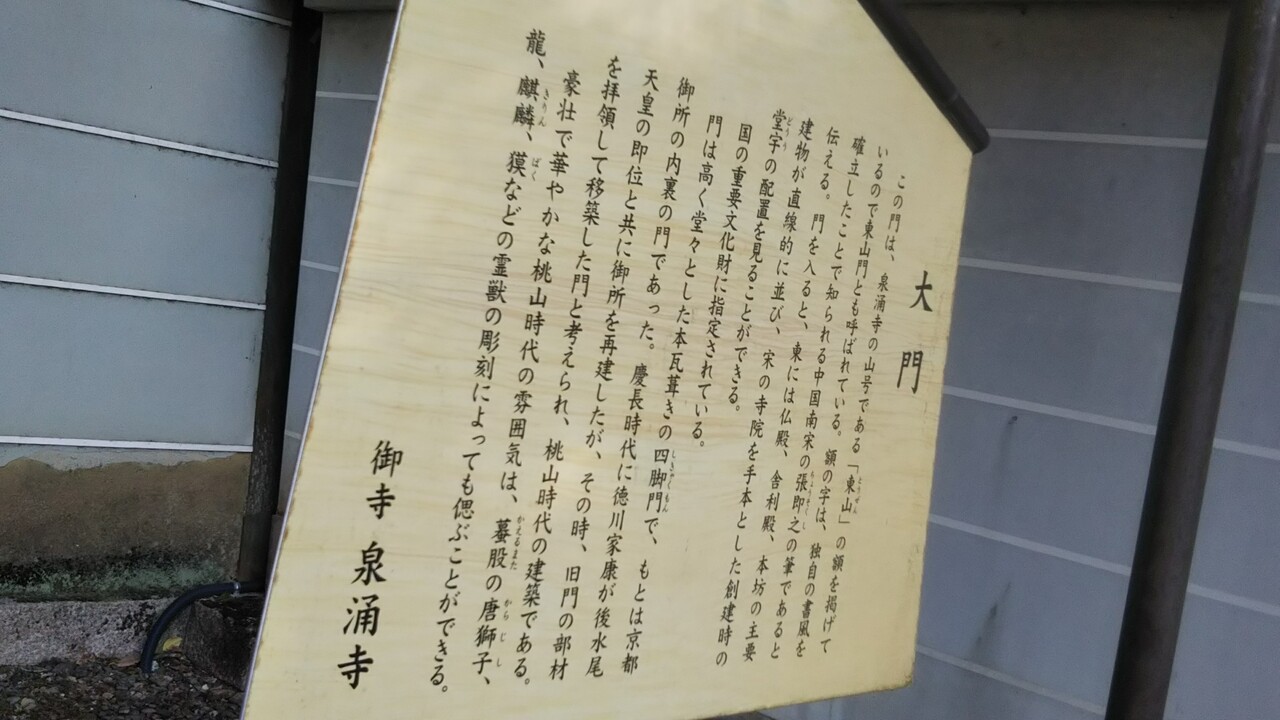 大門
この門は、泉涌寺の山号である「東山」の額を掲げて
いるので東山門とも呼ばれている。額の字は、独自の書風を
確立したことで知られる中国南宋の張即之の筆であると
伝える。門を入ると、東には仏殿、舎利殿、本坊の主要
建物が直線的に並び、宋の寺院を手本とした創建時の
堂宇の配置を見ることができる。
国の重要文化財に指定されている。
門は高く堂々とした本瓦葺きの四脚門で、もとは京都
御所の内裏の門であった。慶長時代に徳川家康が後水尾
天皇の即位と共に御所を再建したが、その時、旧門の部材
を拝領して移築した門と考えられ、桃山時代の建築である。
豪壮で華やかな桃山時代の雰囲気は、蟇股の唐獅子、
龍、麒麟、獏などの霊獣の彫刻によっても偲ぶことができる。
御寺 泉涌寺